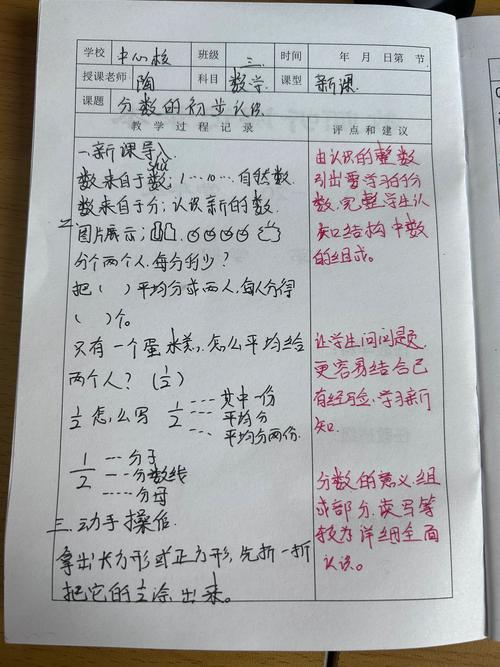 学校 中心校 班级 三 时间 年 月 日第 节
授课老师 陶 科目 数学 课型 新课
课题 分数的初步认识
教学过程记录 评点和建议
一.新课导入
数来自于数；1…10…自然数.
数来自于分；认识新的数.
二
图片展示；
分个两个人,每分的少?
把( )平均分成两人,每人分得
( )个。
只有一个蛋 怎么平均给
两个人? (1/2)
1/2怎么写 1/2 其中一份
平均分
平均分两份.
1/2 分子
分数线
分母
三.动手操作.
拿出长方形或正方形,先折一折
把它的1/2涂出来。
由认识的整数
引出要学习的分
数,完整学生认
知结构中数
的组成。
让学生问问题
更容易结合已
有经验,学习新
知.
分数的意义,组
成部分,读写等
较为详细全面
认识。